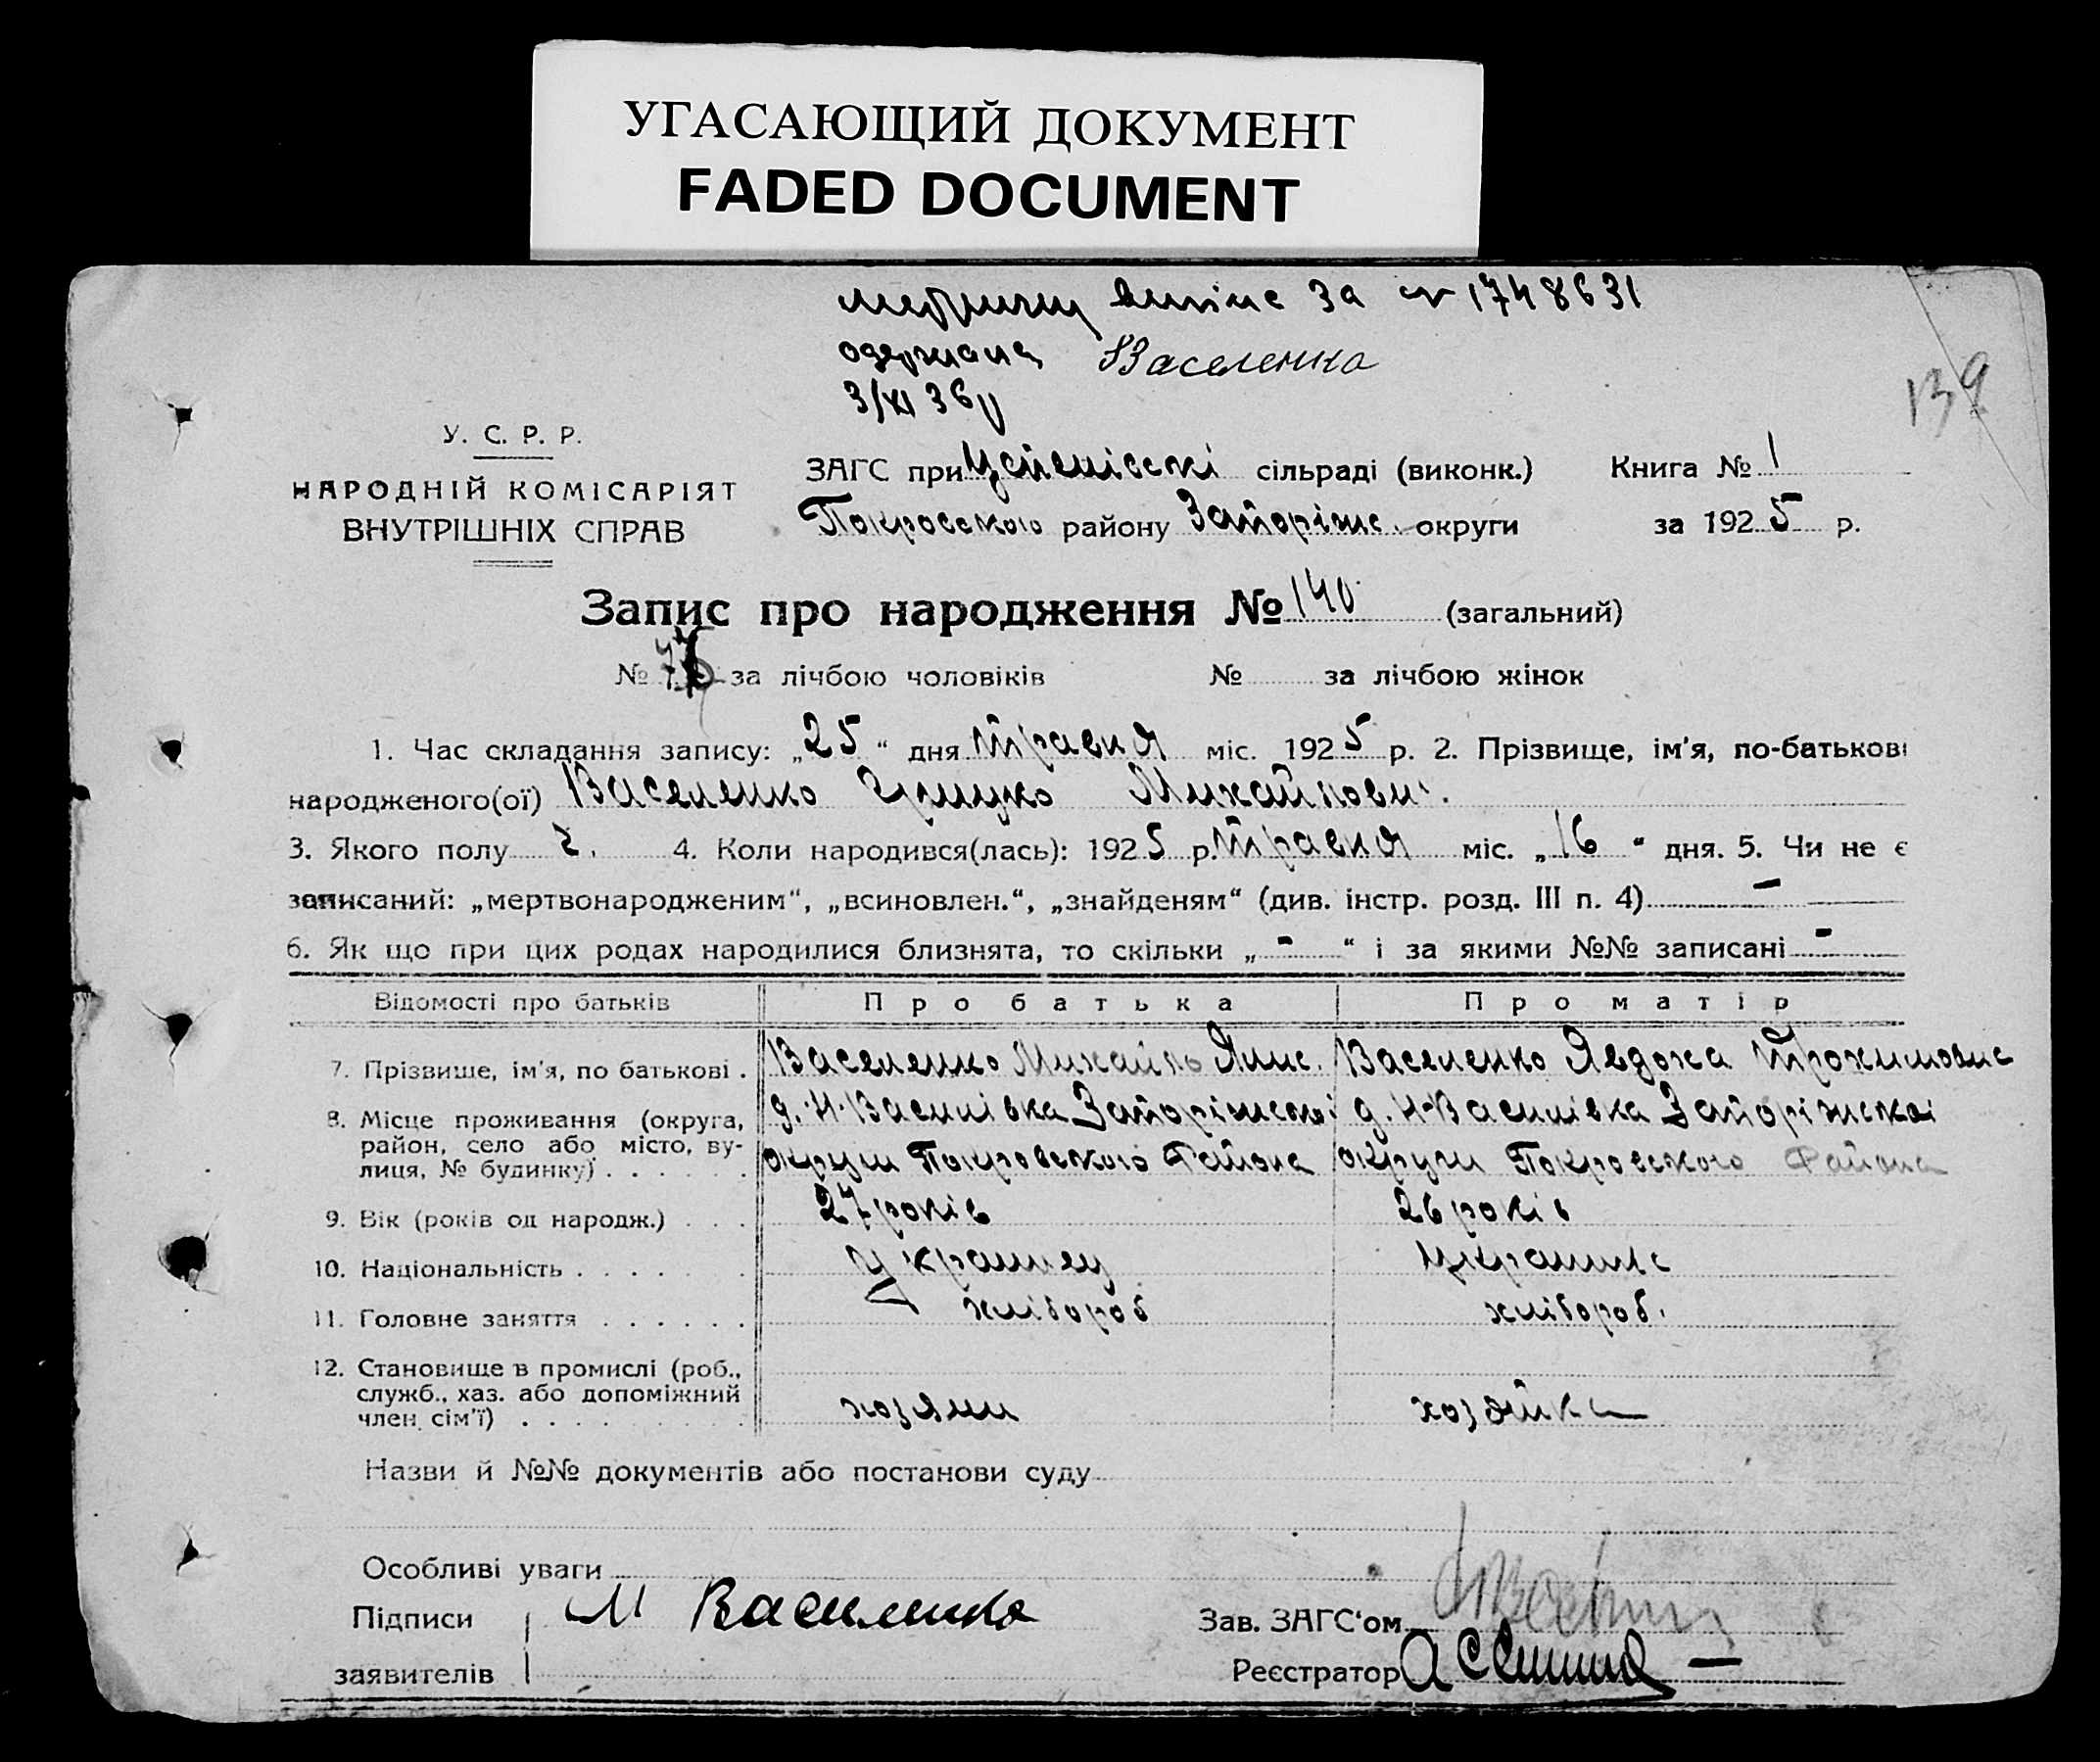 УГАСАЮЩИЙ ДОКУМЕНТ
FADED DOCUMENT
за № 1748631
одержана Васеленко
3/XI 36 р
139
У. С. Р. Р.
НАРОДНІЙ КОМІСАРІЯТ
ВНУТРІШНІХ СПРАВ
ЗАГС при сільраді (виконк.) Книга № 1
Покровского району Запоріжс. округи за 1925 р.
Запис про народження № 140 (загальний)
№ за лічбою чоловіків № за лічбою жінок
1. Час складання запису: „25“ дня травня міс. 1925 р. 2. Прізвище, ім'я, по-батькові
народженого(ої) Васеленко Грицко Михайлови.
3. Якого полу ч. 4. Коли народився(лась): 1925 р. травня міс. „16“ дня. 5. Чи не є
записаний: „мертвонародженим“, „всиновлен.“, „знайденям“ (див. інстр. розд. III п. 4) –
6. Як що при цих родах народилися близнята, то скільки „-“ і за якими №№ записані -
Відомості про батьків Про батька Про матір
7. Прізвище, ім'я, по батькові . Васеленко Михайло Васеленко Явдоха Трохимовна
8. Місце проживання (округа, д. Н-Василівка Запоріжскоі д. Н-Василівка Запоріжскоі
район, село або місто, ву-
лиця, № будинку) . . . . . . округи Покровского Района округи Покровского Района
9. Вік (років од народж.) . . . 27 років 26 років
10. Національність . . . . . . Украинец Украинка
11. Головне заняття . . . . . . хлібороб хлібороб.
12. Становище в промислі (роб.,
служб., хаз. або допоміжний
член сім'ї) . . . . . . . . хозяин хозяйка
Назви й №№ документів або постанови суду
Особливі уваги
Підписи М Василенко Зав. ЗАГС'ом
заявителів Реєстратор